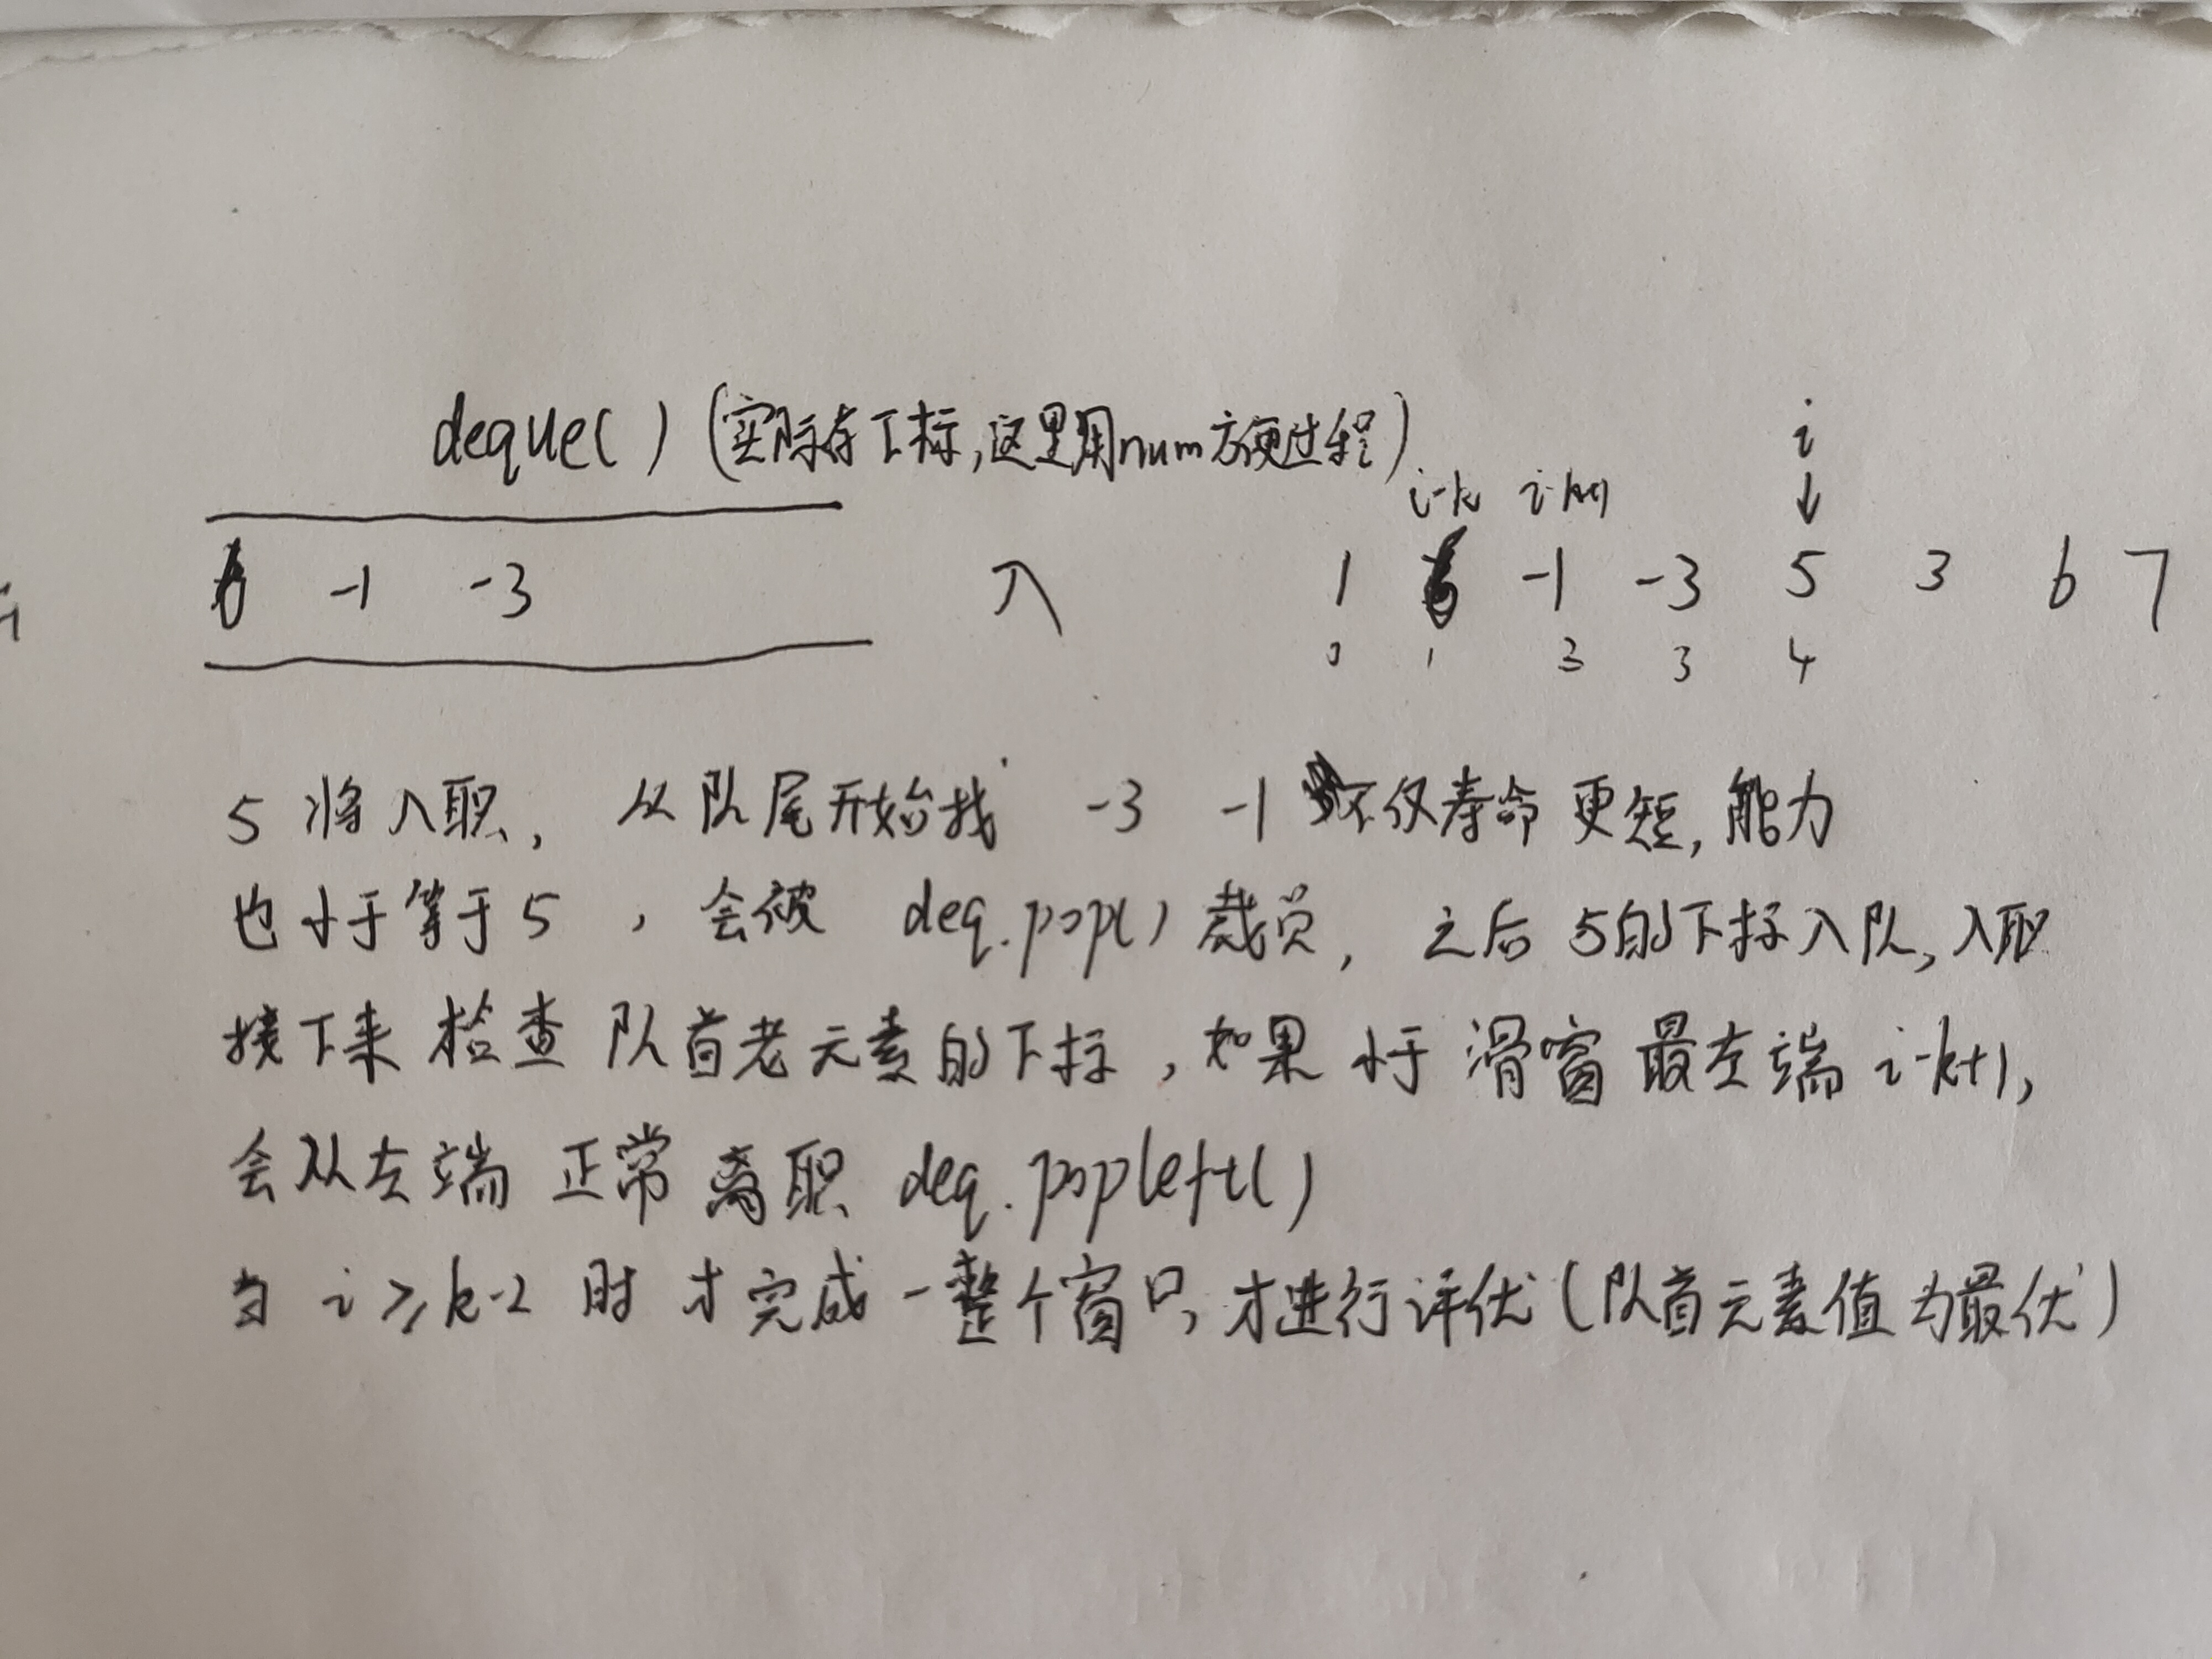 deque() (实际存下标,这里用num方便过程)
i-k i-k+1 i
↓
6 -1 -3 入 1 6 -1 -3 5 3 6 7
0 1 2 3 4
5将入职, 从队尾开始找 -3 -1 不仅寿命更短,能力
也小于等于5,会被 deq.pop()裁员,之后5的下标入队,入职
接下来检查队首老元素的下标,如果小于滑窗最左端i-k+1,
会从左端正常离职 deq.popleft()
当 i≥k-2 时才完成一整个窗口,才进行评优(队首元素值为最优)